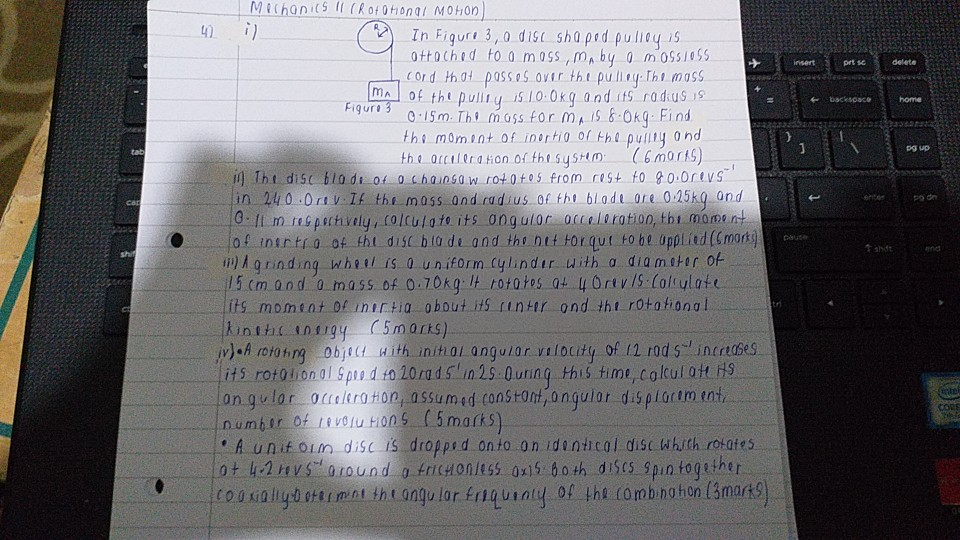 Mechanics 11 (Rotational Motion)
4) i)
R
mA
Figure 3
In Figure 3, a disc shaped pulley is
attached to a mass, mA by a massless
cord that passes over the pulley. The mass
of the pulley is 10.0kg and its radius is
0.15m. The mass for mA is 8.0kg. Find
the moment of inertia of the pulley and
the acceleration of the system. (6 marks)
ii) The disc blade of a chainsaw rotates from rest to 80.0revs⁻¹
in 240.0rev. If the mass and radius of the blade are 0.25kg and
0.11 m respectively, calculate its angular acceleration, the moment
of inertia of the disc blade and the net torque to be applied (6marks)
iii) A grinding wheel is a uniform cylinder with a diameter of
15 cm and a mass of 0.70kg. It rotates at 40rev/s. Calculate
its moment of inertia about its center and the rotational
kinetic energy (5marks)
iv) • A rotating object with initial angular velocity of 12 rads⁻¹ increases
its rotational speed to 20rads⁻¹ in 2s. During this time, calculate its
angular acceleration, assumed constant, angular displacement,
number of revolutions (5marks)
• A uniform disc is dropped onto an identical disc which rotates
at 4.2revs⁻¹ around a frictionless axis. Both discs spin together
coaxially. Determine the angular frequency of the combination (3marks)
insert
prt sc
delete
backspace
home
tab
pg up
enter
pg dn
pause
shift
end